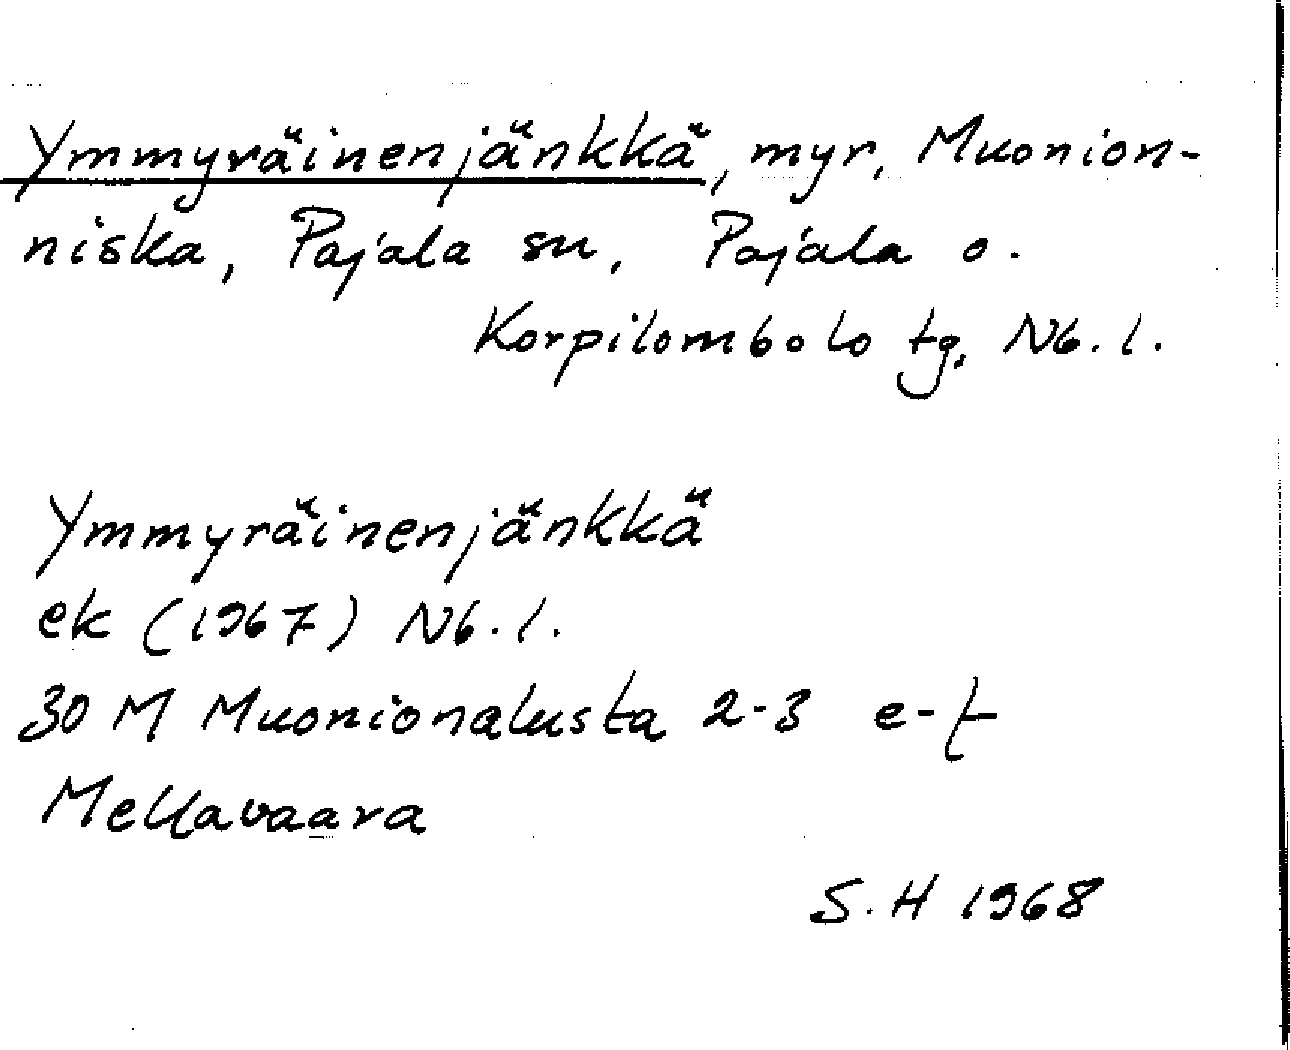 Ymmyräinenjänkkä, myr, Muonion-
niska, Pajala sn, Pajala o.
Korpilombolo tg. Nb. l.
Ymmyräinenjänkkä
ek (1967) Nb. l.
30 M Muonionalusta 2-3 e-f
Mellavaara
S. H 1968